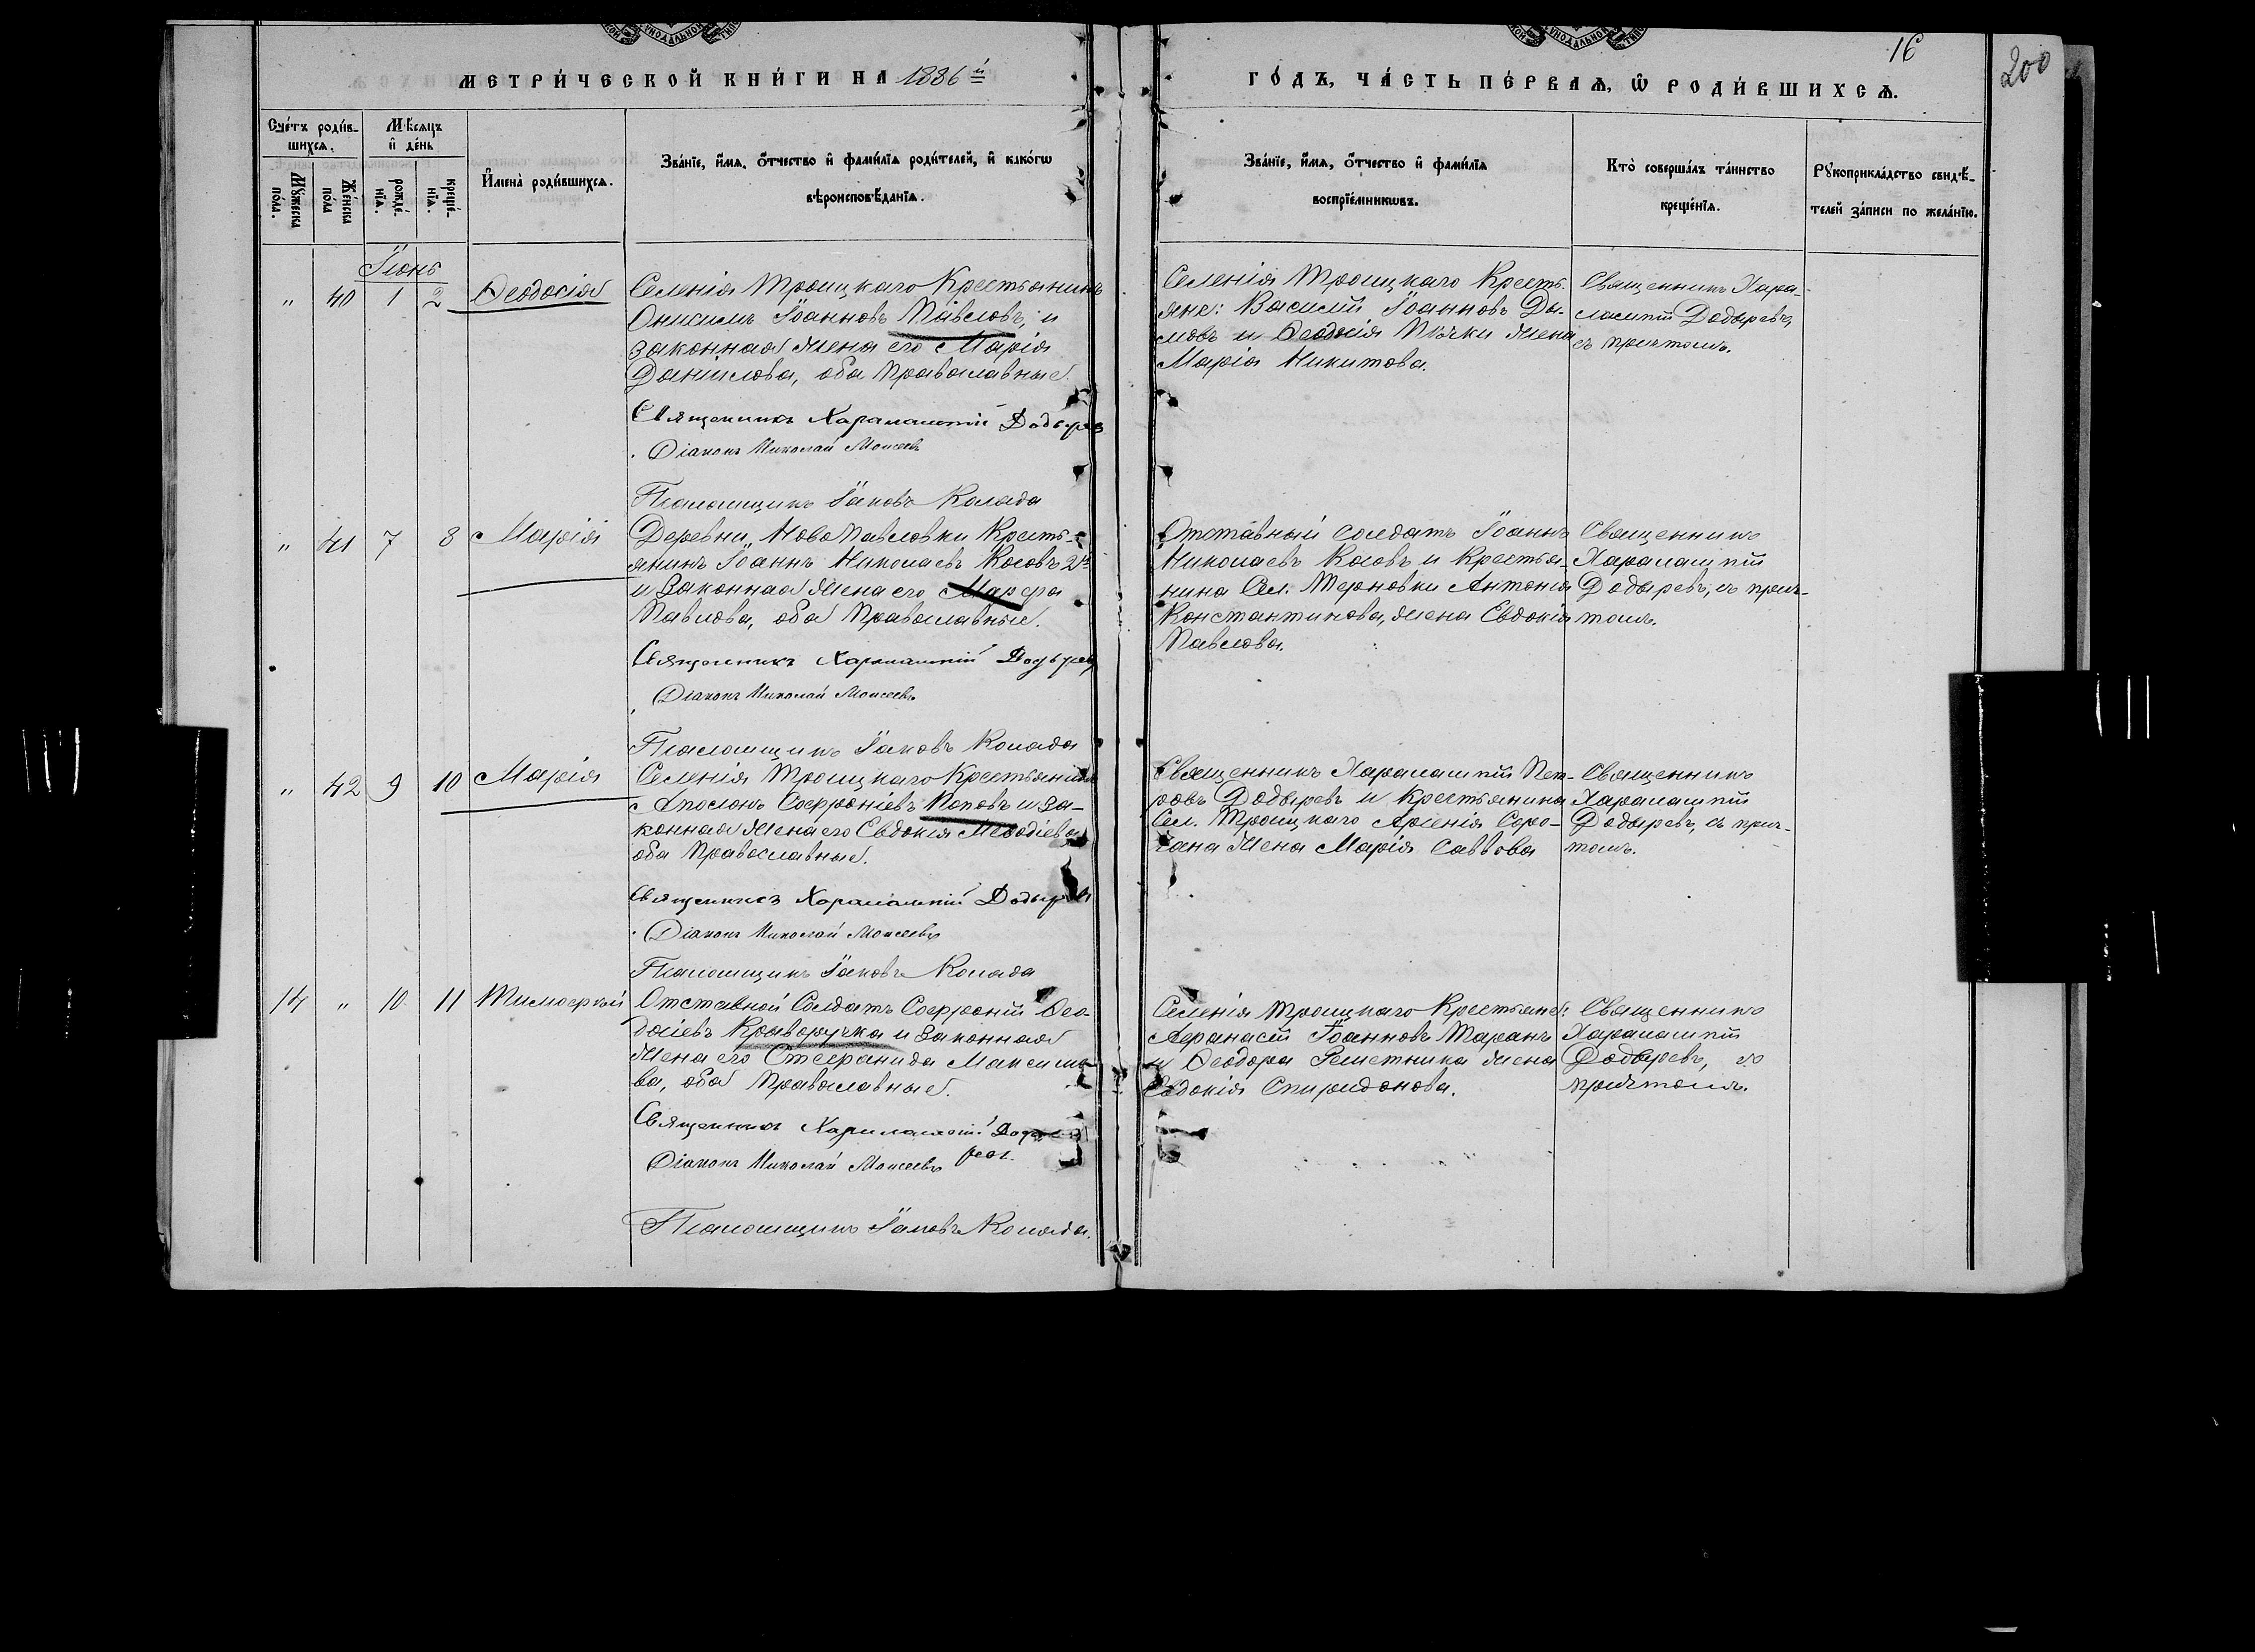 МЕТРИ́ЧЕСКОЙ КНИ́ГИ НА 1886й
ГО́ДЪ, ЧА́СТЬ ПЕ́РВАѦ, Ѡ҆ РОДИ́ВШИХСѦ.
16
200
Сче́тъ роди́в-
шихсѧ.
Мѣ́сѧцъ
и҆ де́нь
Мꙋ́жеска
по́ла.
Же́нска
по́ла
рожде́-
нїѧ.
креще́-
нїѧ.
И҆мена̀ роди́вшихсѧ.
Зва́нїе, и҆́мѧ, ѻ҆́тчество и҆ фами́лїѧ роди́телей, и҆ како́гѡ
вѣроисповѣ́данїѧ.
Зва́нїе, и҆́мѧ, ѻ҆́тчество и҆ фами́лїѧ
воспрїе́мникѡвъ.
Кто̀ соверша́лъ та́инство
креще́нїѧ.
Рꙋкоприкла́дство свидѣ́-
телей за́писи по жела́нїю.
Іюнь
" 40 1 2 Ѳеодосія
Селенія Троицкаго Крестьянинъ
Онисимъ Іоанновъ Павловъ, и
законная жена его Марія
Даніилова, оба православные.
Священникъ Харалампій Додырев
Діаконъ Николай Моисеевъ
Псаломщикъ Іаковъ Колада
Селенія Троицкаго Кресть-
яне: Василій Іоанновъ Ды-
мовъ и Ѳеодосія жена
Марія Никитова.
Священникъ Хара-
лампій Додыревъ,
съ причтомъ.
" 41 7 8 Марія
Деревни НовоПавловки Кресть-
янинъ Іоаннъ Николаевъ Косовъ 2й
и законная жена его Марфа
Павлова, оба православные.
Священникъ Харалампій Додырев
Діаконъ Николай Моисеевъ
Псаломщикъ Іаковъ Колада
Отставный солдатъ Іоаннъ
Николаевъ Косовъ и крестья-
нина Сел. Терновки Антонія
Константинова, жена Евдокія
Павлова.
Священникъ
Харалампій
Додыревъ, съ прич-
томъ.
" 42 9 10 Марія
Селенія Троицкаго Крестьянинъ
Аполонъ Софроніевъ Поповъ и за-
конная жена его Евдокія Меѳодіева
оба православные.
Священникъ Харалампій Додырев
Діаконъ Николай Моисеевъ
Псаломщикъ Іаковъ Колада
Священникъ Харалампій Пет-
ровъ Додыревъ и крестьянина
Сел. Троицкаго Арсенія Соро-
чана жена Марія Саввова
Священникъ
Харалампій
Додыревъ, съ прич-
томъ.
14 " 10 11 Тимоѳей
Отставной Солдатъ Софроній Ѳео-
досіевъ Криворучка и законная
жена его Стефанида Максимо-
ва, оба православные.
Священникъ Харалампій
Діаконъ Николай Моисеевъ
Псаломщикъ Іаковъ Колада.
Селенія Троицкаго Крестьяне:
Афанасій Іоанновъ Таранъ
и Ѳеодора Решетника жена
Евдокія Спиридонова.
Священникъ
Харалампій
Додыревъ, съ
причтомъ.